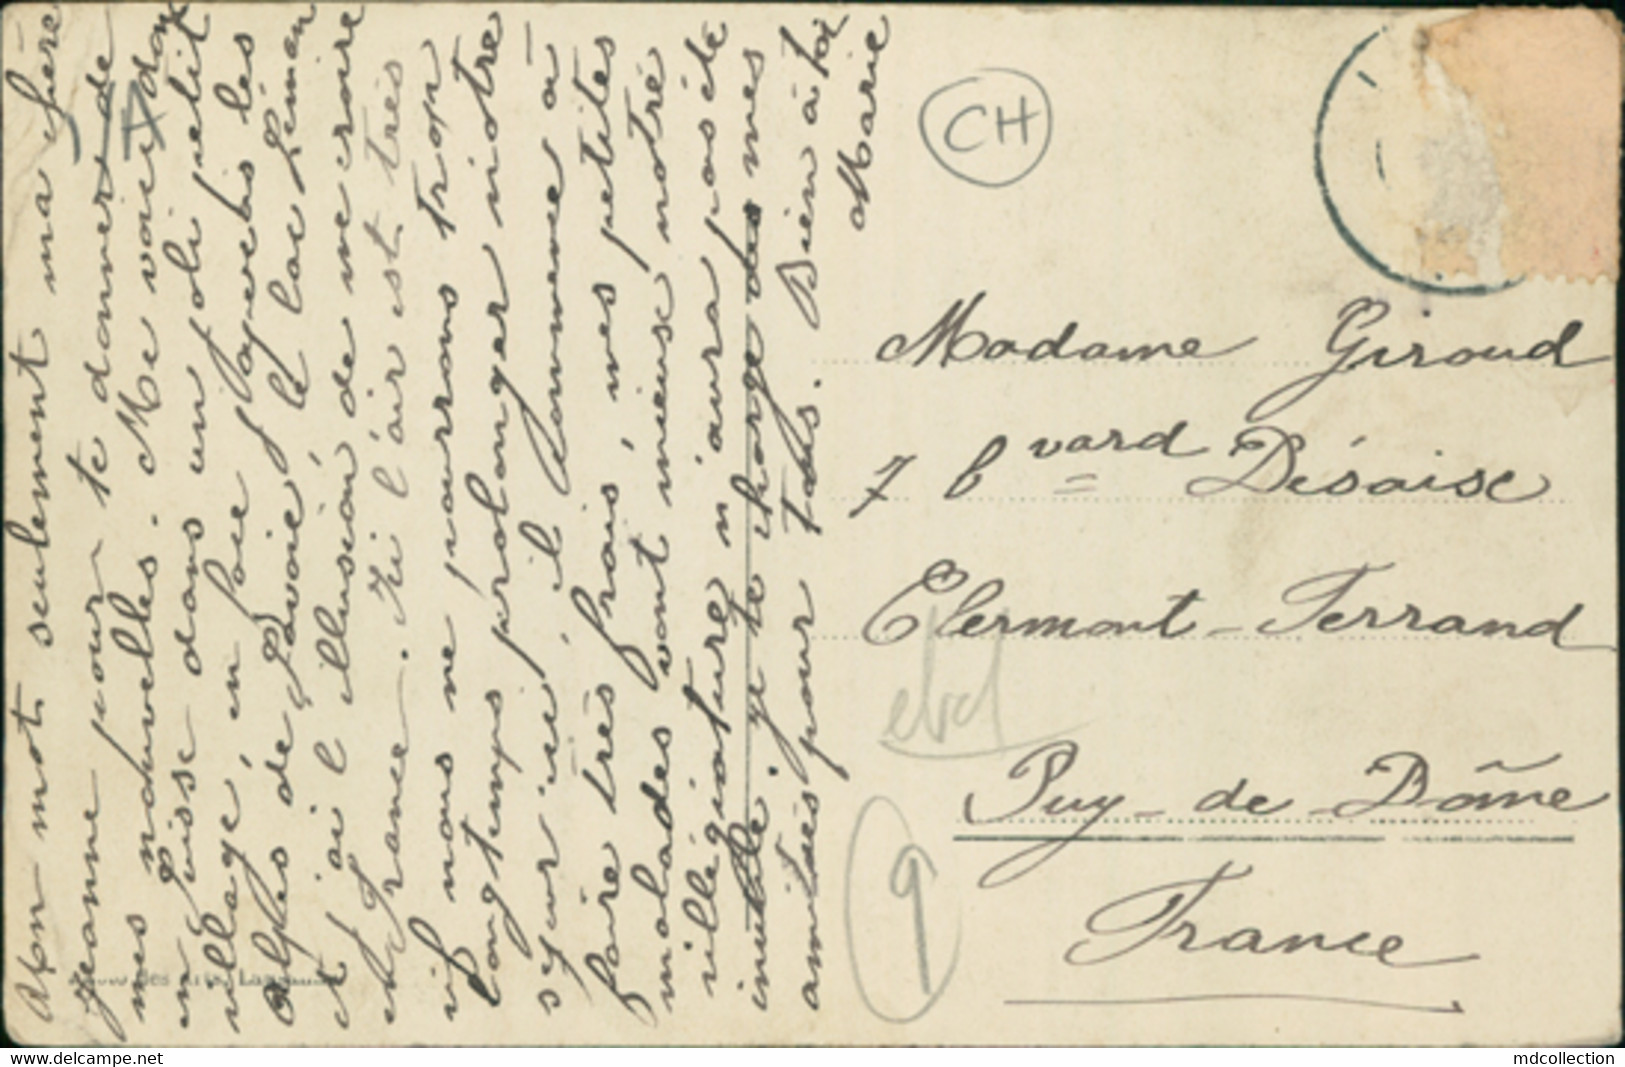 Un mot seulement ma chère
Jeanne pour te donner de
mes nouvelles. Me voici donc
en Suisse dans un joli petit
village, en face j'aperçois les
Alpes de Savoie, le lac Léman
et ai l'illusion de me croire
en France. Ici l'air est très
vif nous ne pourrons trop
longtemps prolonger notre
séjour ici, il commence à
faire très frais, mes petites
malades vont mieux notre
villégiature n'aura pas été
inutile. Je te charge de mes
amitiés pour tous. Bien à toi
Marie
CH
Madame Giroud
7 bvard Désaise
Clermont-Ferrand
Puy-de-Dôme
France
9
www.delcampe.net
mdcollection